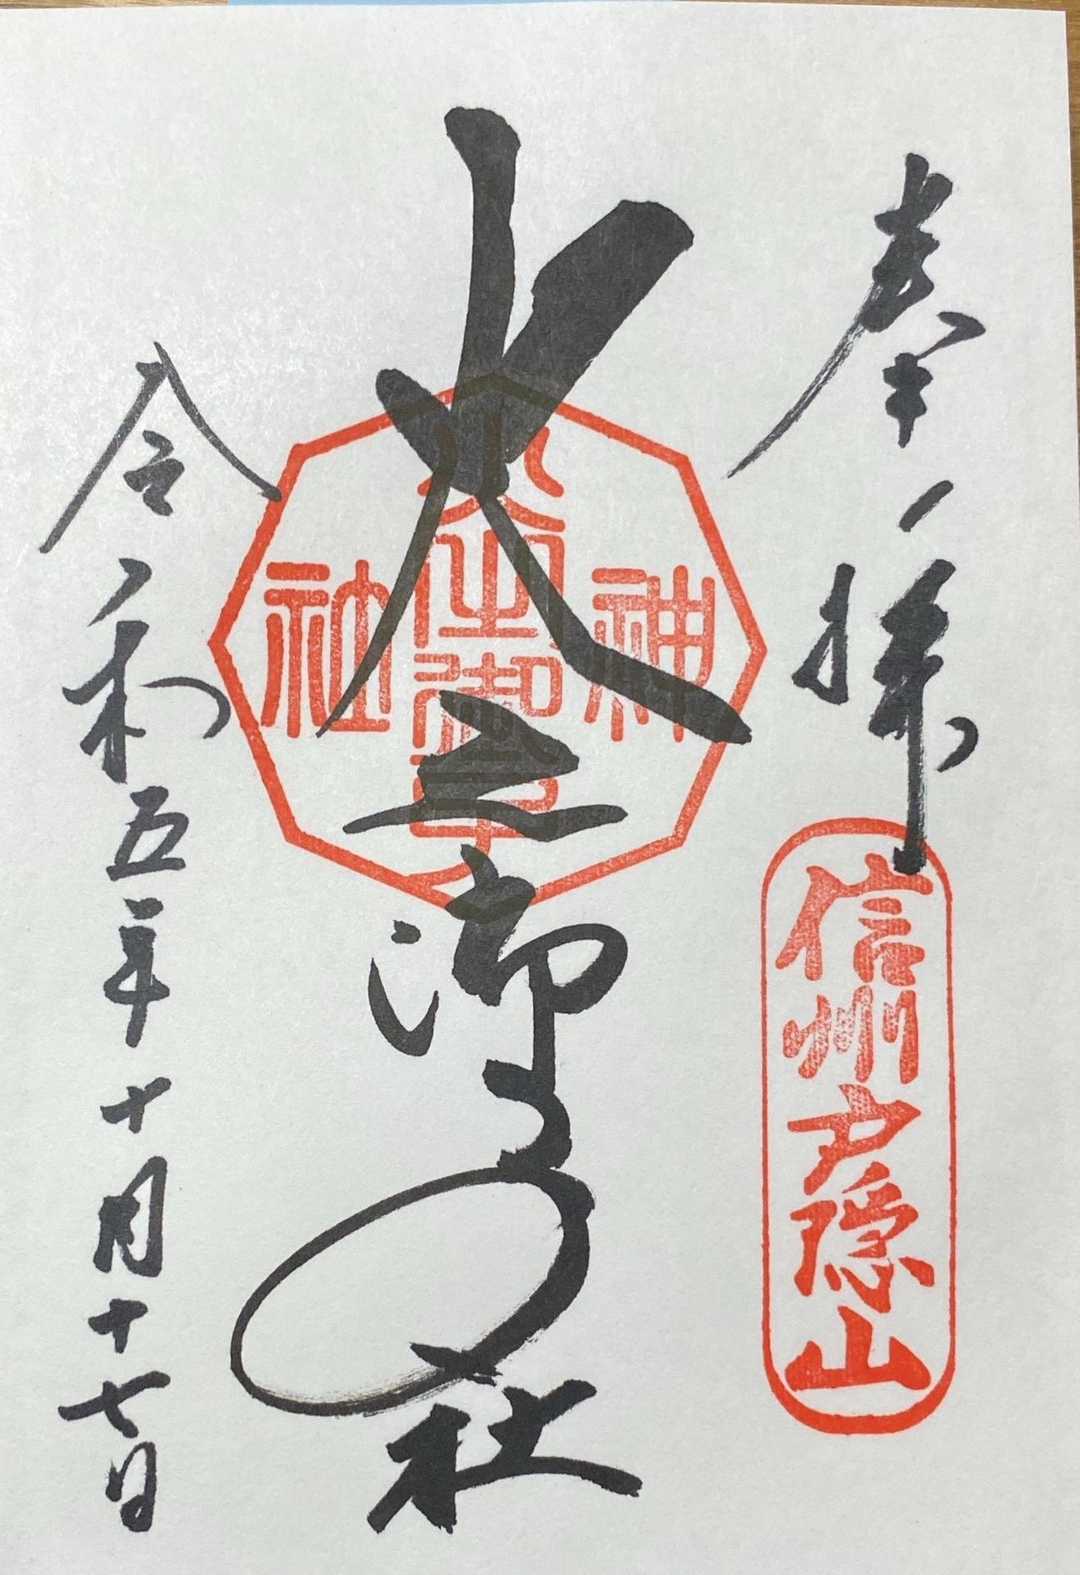 奉拝
信州戸隠山
火之御子社
火之御子
神
社
令和五年十月十七日